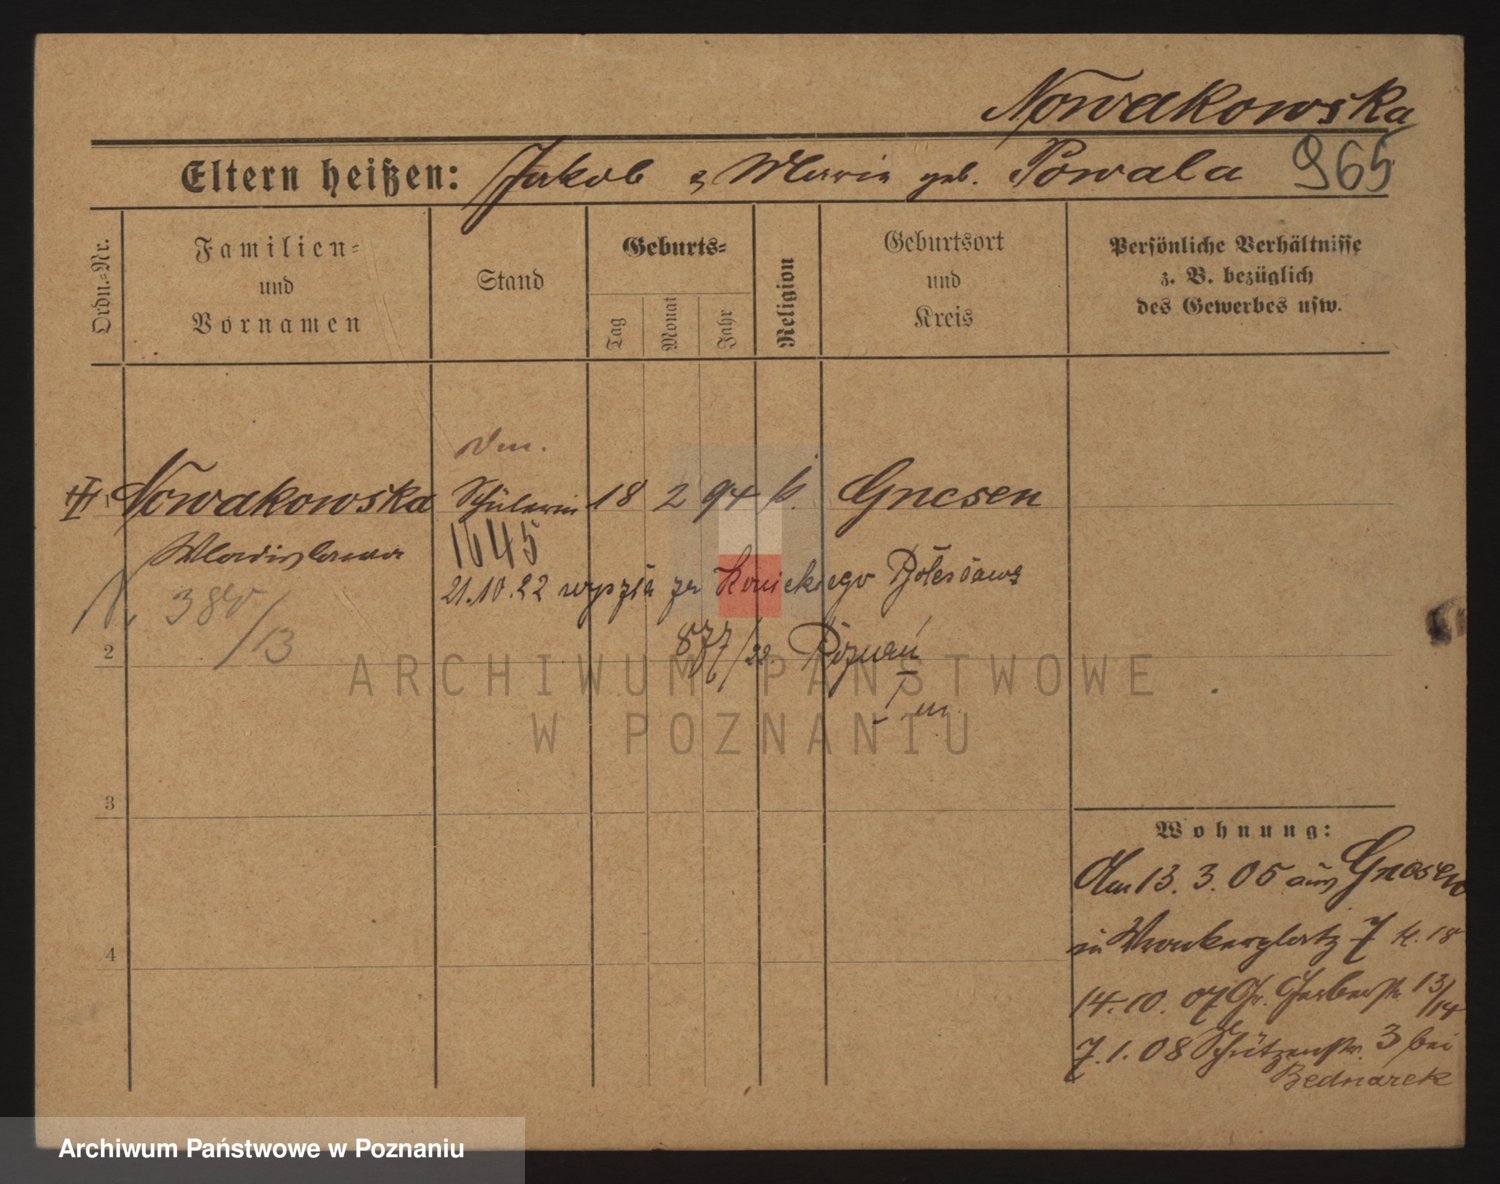 Nowakowska
Eltern heißen: Jakob & Maria geb. Powala 965
Ordn.-Nr.
Familien- und Vornamen
Stand
Geburts-
Tag
Monat
Jahr
Religion
Geburtsort und Kreis
Persönliche Verhältnisse z. B. bezüglich des Gewerbes usw.
Nowakowska Schülerin 18 2 94 k. Gnesen
Wladislawa
1645
21.10.22 wyszła za Konickiego Bolesława
380/13
877/22 Poznań
2
ARCHIWUM PAŃSTWOWE
W POZNANIU
3
Wohnung:
Am 13. 3. 05 aus Gnesen
in Wronkerplatz 7 k. 18
4
14. 10. 07 Gr. Gerberstr. 13/14
7. 1. 08 Schützenstr. 3 bei
Bednarek
Archiwum Państwowe w Poznaniu